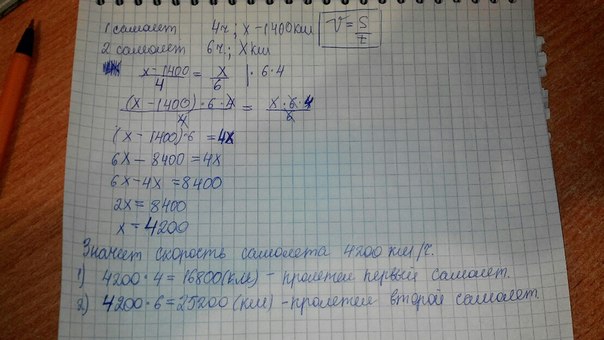 1 самолет 4ч; x - 1400км V = S/t
2 самолет 6ч; X км
(x-1400)/4 = x/6 | · 6 · 4
((x - 1400) · 6 · 4)/4 = (x · 6 · 4)/6
(x - 1400) · 6 = 4x
6x - 8400 = 4x
6x - 4x = 8400
2x = 8400
x = 4200
Значит скорость самолета 4200 км/ч.
1) 4200 · 4 = 16800 (км) - пролетел первый самолет.
2) 4200 · 6 = 25200 (км) - пролетел второй самолет.